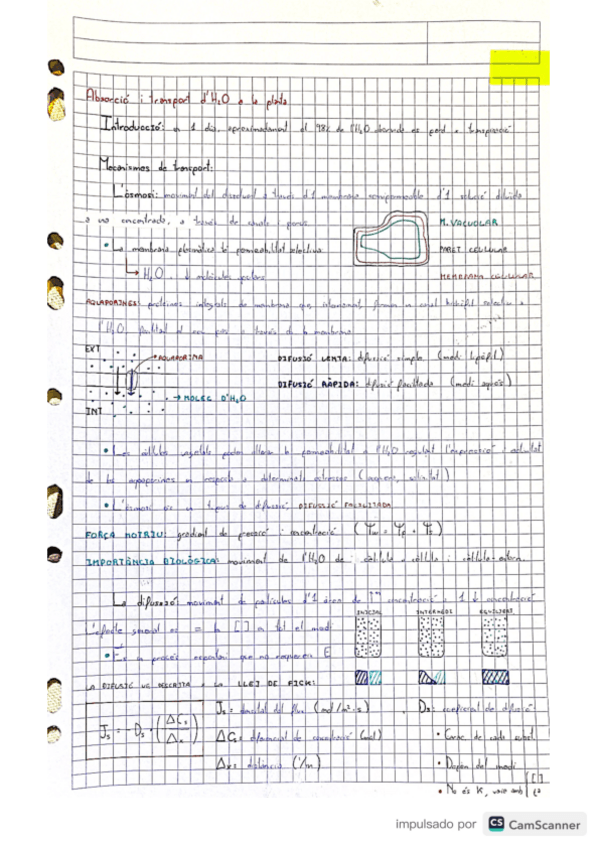 Absorció i transport d'H2O a la planta
Introducció: en 1 dia, aproximadament el 98% de l'H2O absorvida es perd x transpiració
Mecanismes de transport:
L'òsmosi: moviment del dissolvent a través d'1 membrana semipermeable d'1 solució diluïda
a una concentrada, a través de canals i porus
M. VACUOLAR
• La membrana plasmàtica té permeabilitat selectiva
PARET CEL·LULAR
↳ H2O, ↓ molècules polars
MEMBRANA CEL·LULAR
AQUAPORINES: proteïnes integrals de membrana que, formen un canal hidròfil selectiu a
l'H2O, facilitant el seu pas a través de la membrana
EXT
AQUAPORINA
DIFUSIÓ LENTA: difusió simple (medi lipòfil)
DIFUSIÓ RÀPIDA: difusió facilitada (medi aquós)
→ MOLEC D'H2O
INT
• Les cèl·lules vegetals poden alterar la permeabilitat a l'H2O regulant l'expressió i activitat
de les aquaporines en resposta a determinats estressos
• L'òsmosi és un tipus de difusió, DIFUSIÓ FACILITADA
FORÇA MOTRIU: gradient de pressió i concentració (Ψw = Ψp + Ψs)
IMPORTÀNCIA BIOLÒGICA: moviment de l'H2O de cèl·lula a cèl·lula i cèl·lula-extern
La difusió: moviment de partícules d'1 àrea de concentració a 1 de concentració
INICIAL
EQUILIBRI
L'efecte general és = la [ ] en tot el medi
• És un procés espontani que no requereix E
LA DIFUSIÓ VE DESCRITA X LA LLEI DE FICK:
Js = -Ds · (ΔCs / Δx)
Js = densitat del flux (mol/m²·s)
Ds: coeficient de difusió
ΔCs: diferencial de concentració (mol)
• Carac. de cada
Δx: distància (1/m)
• Depèn del medi
• No és K, varia amb [ ]
impulsado por CS CamScanner